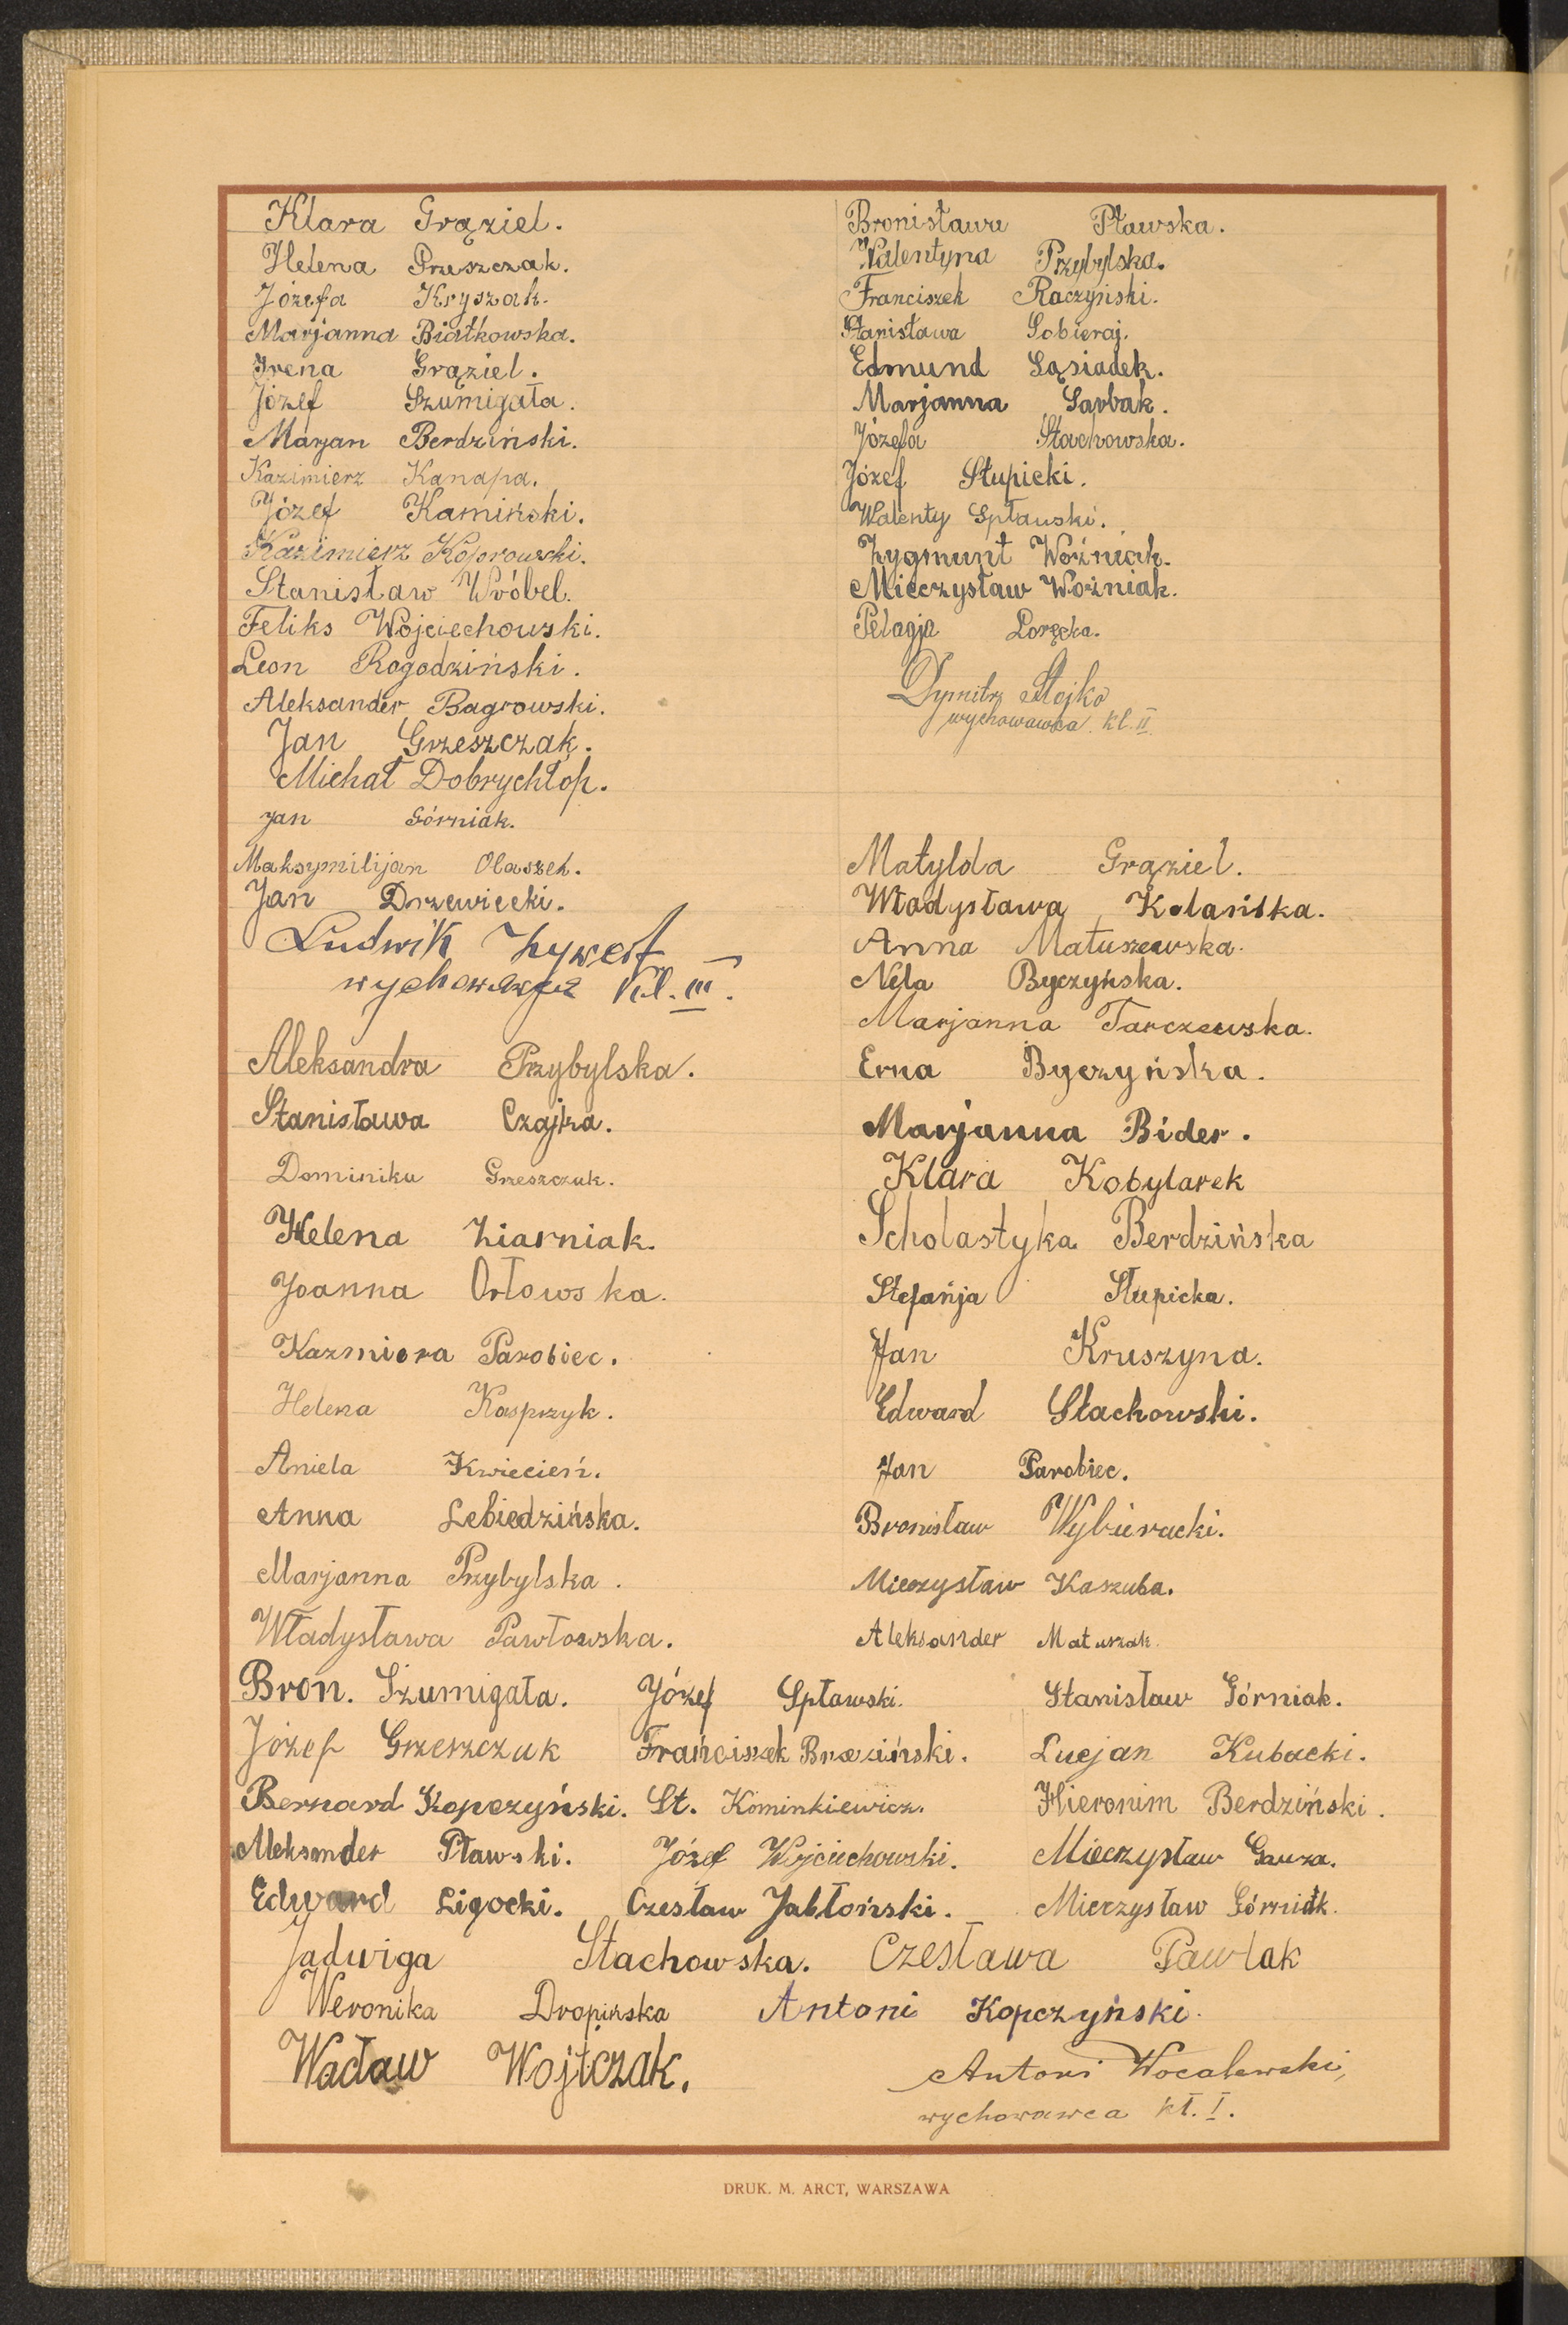 Klara Grąziel.
Helena Preszczak.
Józefa Kryszak.
Marjanna Białkowska.
Irena Grąziel.
Józef Szumigała.
Marjan Berdziński.
Kazimierz Kanapa.
Józef Kamiński.
Kazimierz Koprowski.
Stanisław Wróbel.
Feliks Wojciechowski.
Leon Rogodziński.
Aleksander Bagrowski.
Jan Grzeszczak.
Michał Dobrychłop.
Jan Górniak.
Maksymilijan Olaszek.
Jan Drzewiecki.
Ludwik Żywert
wychowawca Kl. III.
Aleksandra Przybylska.
Stanisława Czajka.
Dominika Greszczuk.
Helena Ziarniak.
Joanna Orłowska.
Kazmiera Parobiec.
Helena Kasprzyk.
Aniela Kwiecień.
Anna Lebiedzińska.
Marjanna Przybylska.
Władysława Pawłowska.
Bronisława Pławska.
Walentyna Przybylska.
Franciszek Raczyński.
Stanisława Sobieraj.
Edmund Sąsiadek.
Marjanna Sarbak.
Józefa Stachowska.
Józef Słupicki.
Walenty Spławski.
Zygmunt Woźniak.
Mieczysław Woźniak.
Pelagja Poręcka.
Dymitr Stojko
wychowawca kl. II.
Matylda Grąziel.
Władysława Kolańska.
Anna Matuszewska.
Nela Byczyńska.
Marjanna Tarczewska.
Erna Byczyńska.
Marjanna Bider.
Klara Kobylarek
Scholastyka Berdzińska
Stefańja Słupicka.
Jan Kruszyna.
Edward Stachowski.
Jan Parobiec.
Bronisław Wybieracki.
Mieczysław Kaszuba.
Aleksander Matuszak.
Bron. Szumigała. Józef Spławski. Stanisław Górniak.
Józef Grzeszczuk Frańciszek Brzeziński. Lucjan Kubacki.
Bernard Kopczyński. St. Kominkiewicz. Hieronim Berdziński.
Aleksander Pławski. Józef Wojciechowski. Mieczysław Gauza.
Edward Ligocki. Czesław Jabłoński. Mieczysław Górniak.
Jadwiga Stachowska. Czesława Pawlak
Weronika Dropińska Antoni Kopczyński.
Wacław Wojtczak.
Antoni Wocalewski,
wychowawca kl. I.
DRUK. M. ARCT, WARSZAWA